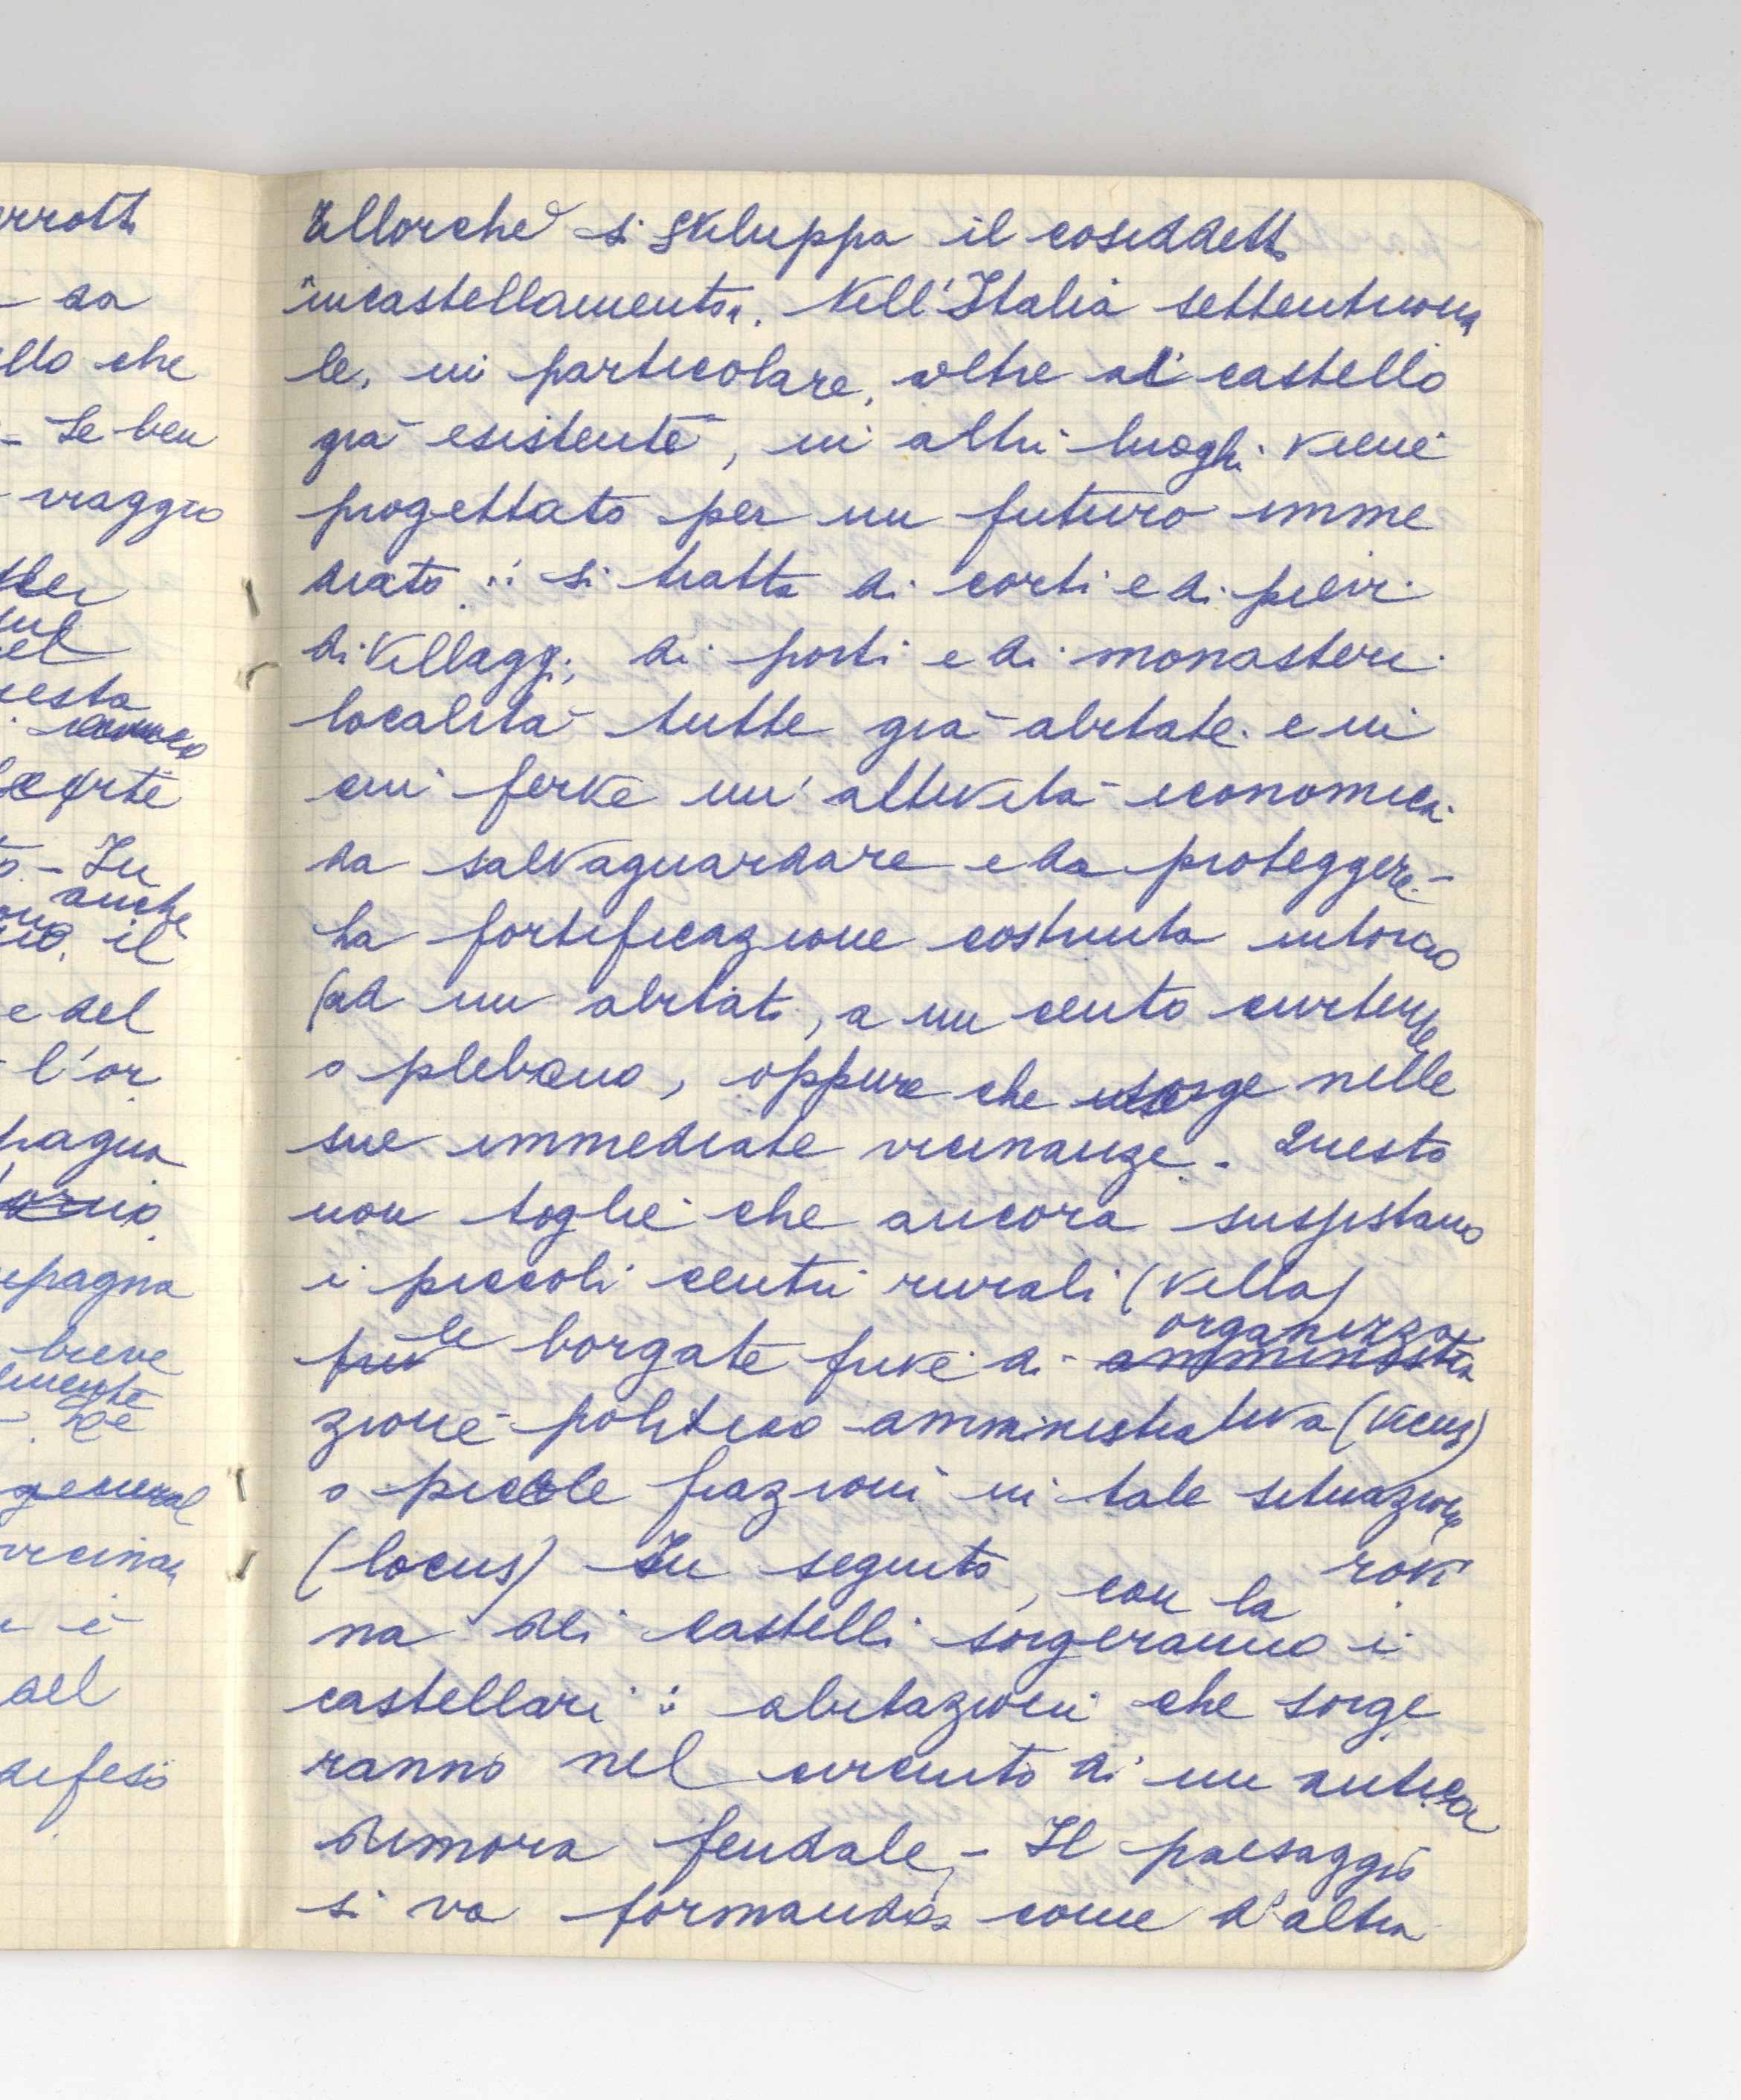 rrotti
da
ello che
- Se ben
viaggio
sul
el
uesta
corte
to. - In
anche
no. il
e del
l'or
pagna
ornio.
mpagna
breve
mente
general
vicinan
è
del
difeso
Allorché si sviluppa il cosiddetto
"incastellamento". Nell'Italia settentriona
le, in particolare, oltre al castello
già esistente, in altri luoghi viene
progettato per un futuro imme
diato : si tratta di corti e di pievi
di villaggi, di porti e di monasteri
località tutte già abitate e in
cui ferve un'attività economica
da salvaguardare e da proteggere. -
La fortificazione costruita intorno
(ad un abitato, a un centro curtense
o plebano, oppure che sorge nelle
sue immediate vicinanze. Questo
non toglie che ancora sussistano
i piccoli centri rurali (villa)
le borgate prive di amministra
organizza
zione politico amministrativa (vicus)
o piccole frazioni in tale situazione
(locus) In seguito, con la rovi
na dei castelli sorgeranno i
castellari : abitazioni che sorge
ranno nel circuito di un antica
dimora feudale, - Il paesaggio
si va formando come d'altra